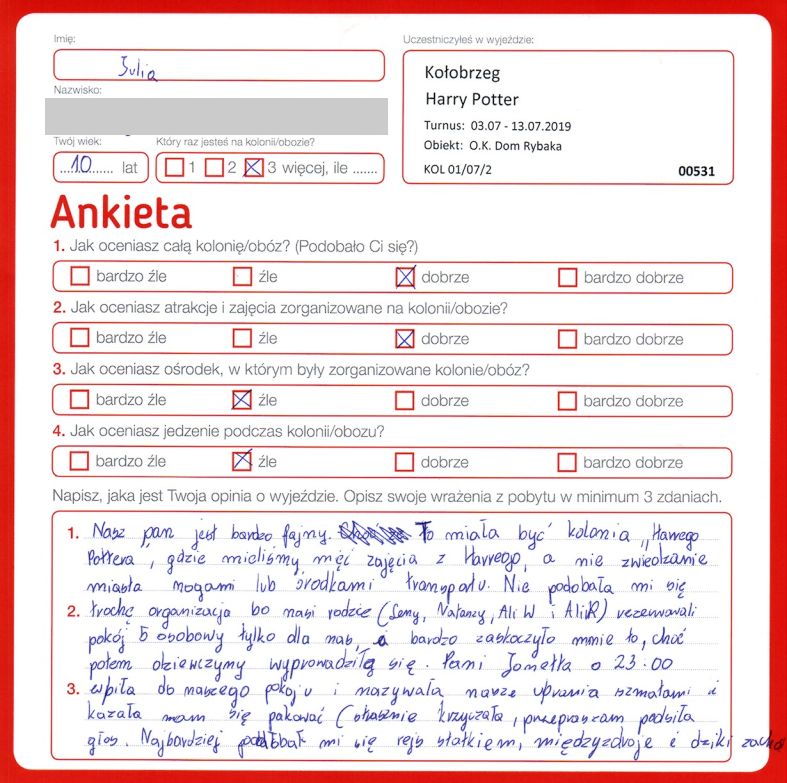 Imię:
Julia
Nazwisko:
Twój wiek:
10 lat
Który raz jesteś na kolonii/obozie?
1 2 3 więcej, ile .......
Uczestniczyłeś w wyjeździe:
Kołobrzeg
Harry Potter
Turnus: 03.07 - 13.07.2019
Obiekt: O.K. Dom Rybaka
KOL 01/07/2 00531
Ankieta
1. Jak oceniasz całą kolonię/obóz? (Podobało Ci się?)
bardzo źle źle dobrze bardzo dobrze
2. Jak oceniasz atrakcje i zajęcia zorganizowane na kolonii/obozie?
bardzo źle źle dobrze bardzo dobrze
3. Jak oceniasz ośrodek, w którym były zorganizowane kolonie/obóz?
bardzo źle źle dobrze bardzo dobrze
4. Jak oceniasz jedzenie podczas kolonii/obozu?
bardzo źle źle dobrze bardzo dobrze
Napisz, jaka jest Twoja opinia o wyjeździe. Opisz swoje wrażenia z pobytu w minimum 3 zdaniach.
1. Nasz pan jest bardzo fajny. To miała być kolonia „Harrego
Pottera", gdzie mieliśmy mieć zajęcia z Harrego, a nie zwiedzanie
miasta nogami lub środkami transportu. Nie podobała mi się
2. trochę organizacja bo nasi rodzice (Leny, Nataszy, Ali W i Ali R) rezerwowali
pokój 5 osobowy tylko dla nas, a bardzo zaskoczyło mnie to, choć
potem dziewczyny wyprowadziłą się. Pani o 23:00
3. wpiła do naszego pokoju i nazywała nasze ubrania szmatami i
kazała nam się pakować (strasznie krzyczała, przepraszam podsiła
głos. Najbardziej podobał mi się rejs statkiem, międzyzdroje i dziki zachó